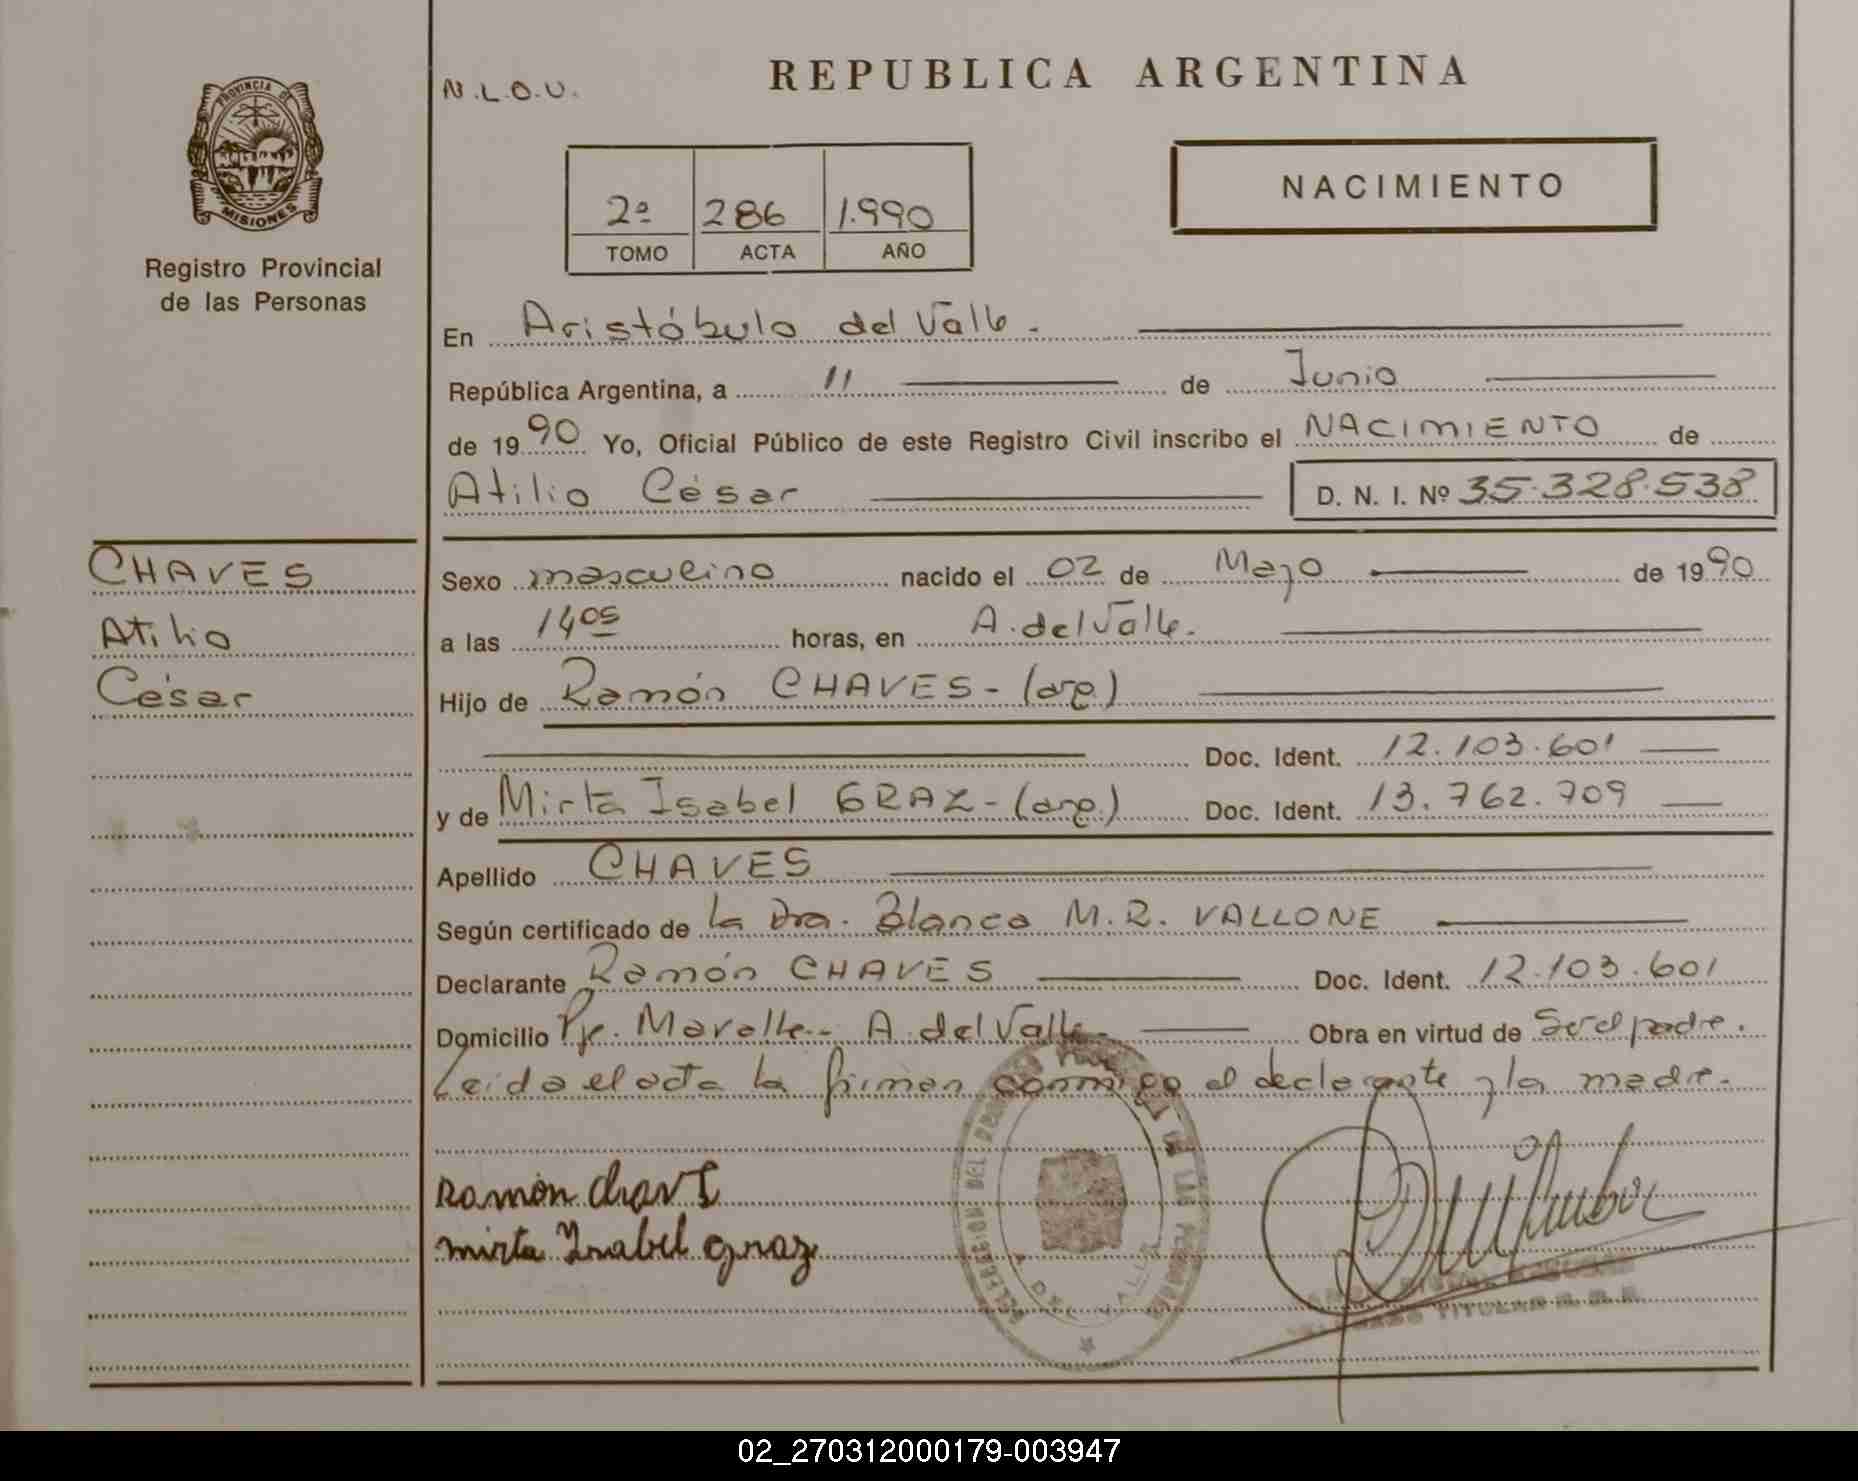 PROVINCIA DE
MISIONES
Registro Provincial
de las Personas
CHAVES
Atilio
César
N.L.O.U.
REPUBLICA ARGENTINA
NACIMIENTO
2º 286 1.990
TOMO ACTA AÑO
En Aristóbulo del Valle.
República Argentina, a 11 de Junio
de 1990 Yo, Oficial Público de este Registro Civil inscribo el NACIMIENTO de
Atilio César D. N. I. Nº 35.328.538
Sexo masculino nacido el 02 de Mayo de 1990
a las 14 05 horas, en A. del Valle.
Hijo de Ramón CHAVES - (arg.)
Doc. Ident. 12.103.601
y de Mirta Isabel GRAZ - (arg.) Doc. Ident. 13.762.709
Apellido CHAVES
Según certificado de la Dra. Blanca M.R. VALLONE
Declarante Ramón CHAVES Doc. Ident. 12.103.601
Domicilio Pje. Mavalle - A. del Valle - Obra en virtud de Ser el padre.
Leida el acta la firman conmigo el declarante y la madre.
Ramón Chaves
mirta Isabel graz
DELEGACION DEL DE LAS PERSONAS
A. DEL VALLE
TITULAR
02_270312000179-003947